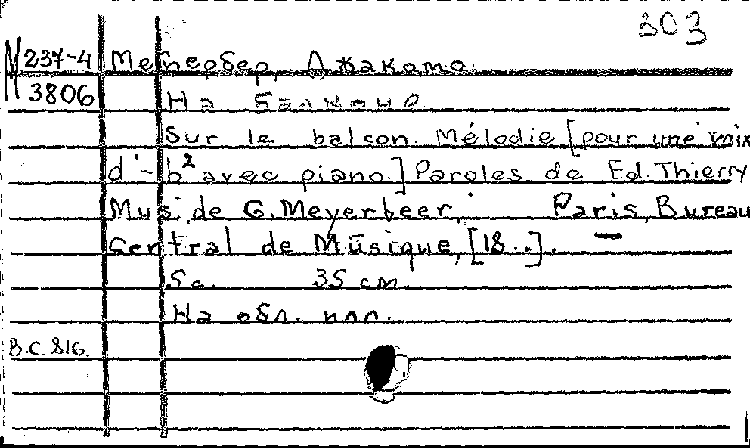 303
М 237-4 Мейербер, Джакомо.
3806 На балконе
Sur le balcon. Mélodie [pour une voix
d'-b² avec piano.] Paroles de Ed. Thierry
Mus. de G. Meyerbeer. Paris, Bureau
Central de Musique, [18..]. —
5 с. 35 см.
На обл. илл.
В.С. 816.